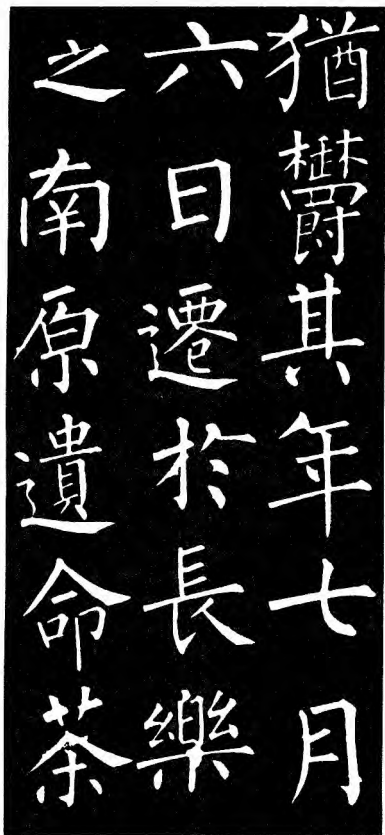 猶欝其年七月
六日遷於長樂
之南原遺命茶